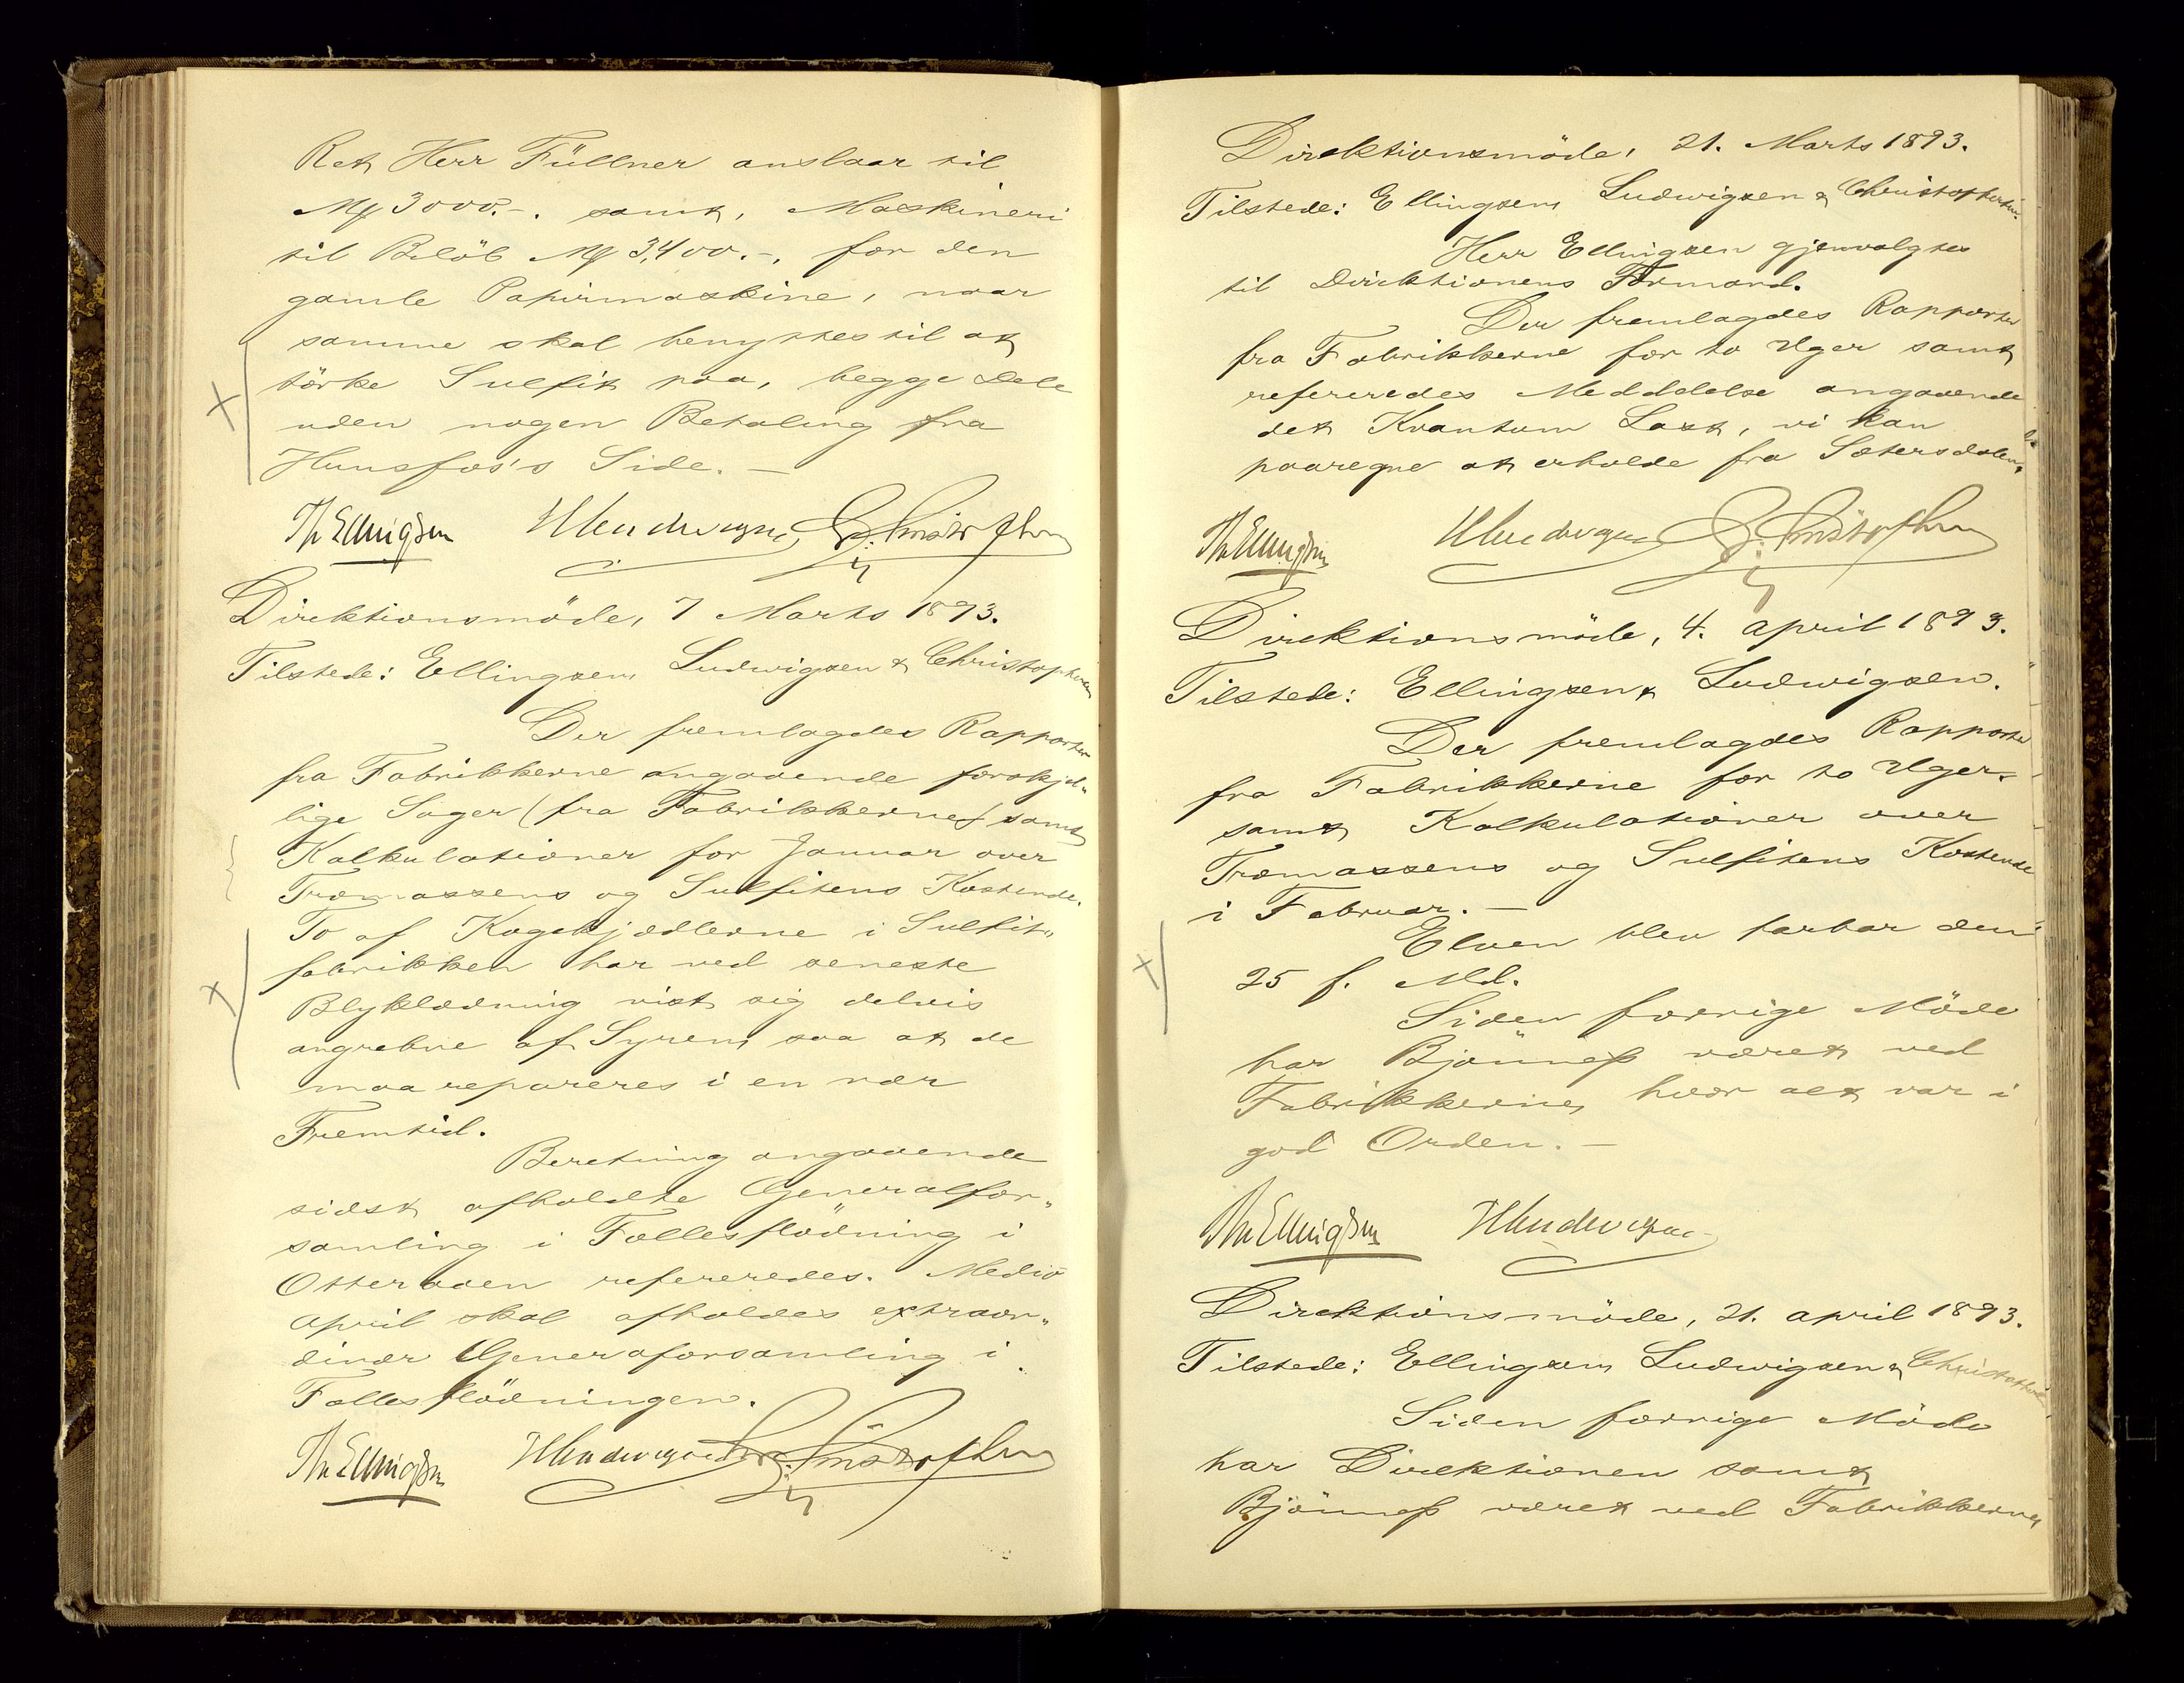 Ret Herr Füllner anslaar til
M 3000.-. samt, Maskineri
til Beløb M 3,400.-, for den
gamle Papirmaskine, naar
samme skal benyttes til at
tørke Sulfit paa, begge Dele
uden nogen Betaling fra
Hunsfos's Side. —
Th Ellingsen HLudwigsen Christophersen
Direktionsmöde, 7 Marts 1893.
Tilstede: Ellingsen, Ludwigsen & Christophersen
Der fremlagdes Rapporter
fra Fabrikkerne angaaende forskjel-
lige Sager (fra Fabrikkerne) samt
Kalkulationer for Januar over
Træmassens og Sulfitens Kostende.
To af Kogekjedlerne i Sulfit-
fabrikken har ved seneste
Blyklædning vist sig delvis
angrebne af Syren, saa at de
maa repareres i en nær
Fremtid.
Beretning angaaende
sidst afholdte Generalfor-
samling i Fællesflødning i
Otteraaen refereredes. Medio
April skal afholdes extraor-
dinær Generaforsamling i
Fællesflödningen.
Th Ellingsen HLudwigsen Christophersen
Direktionsmöde, 21. Marts 1893.
Tilstede: Ellingsen, Ludwigsen & Christophersen.
Herr Ellingsen gjenvalgtes
til Direktionens Formand.
Der fremlagdes Rapporter
fra Fabrikkerne for to Uger samt
refereredes Meddelelse angaaende
det Kvantum Last, vi kan
paaregne at erholde fra Sætersdalen.
Th Ellingsen HLudwigsen Christophersen
Direktionsmöde, 4. April 1893.
Tilstede: Ellingsen & Ludwigsen.
Der fremlagdes Rapporter
fra Fabrikkerne for to Uger
samt Kalkulationer over
Træmassens og Sulfitens Kostende
i Februar. —
Elven blev farbar den
25 f. Md.
Siden forrige Möde
har Bjönness været ved
Fabrikkerne, hvor alt var i
god Orden. —
Th Ellingsen HLudwigsen
Direktionsmöde, 21. April 1893.
Tilstede: Ellingsen, Ludwigsen & Christophersen
Siden forrige Möde
har Direktionen samt
Bjönness været ved Fabrikkerne,